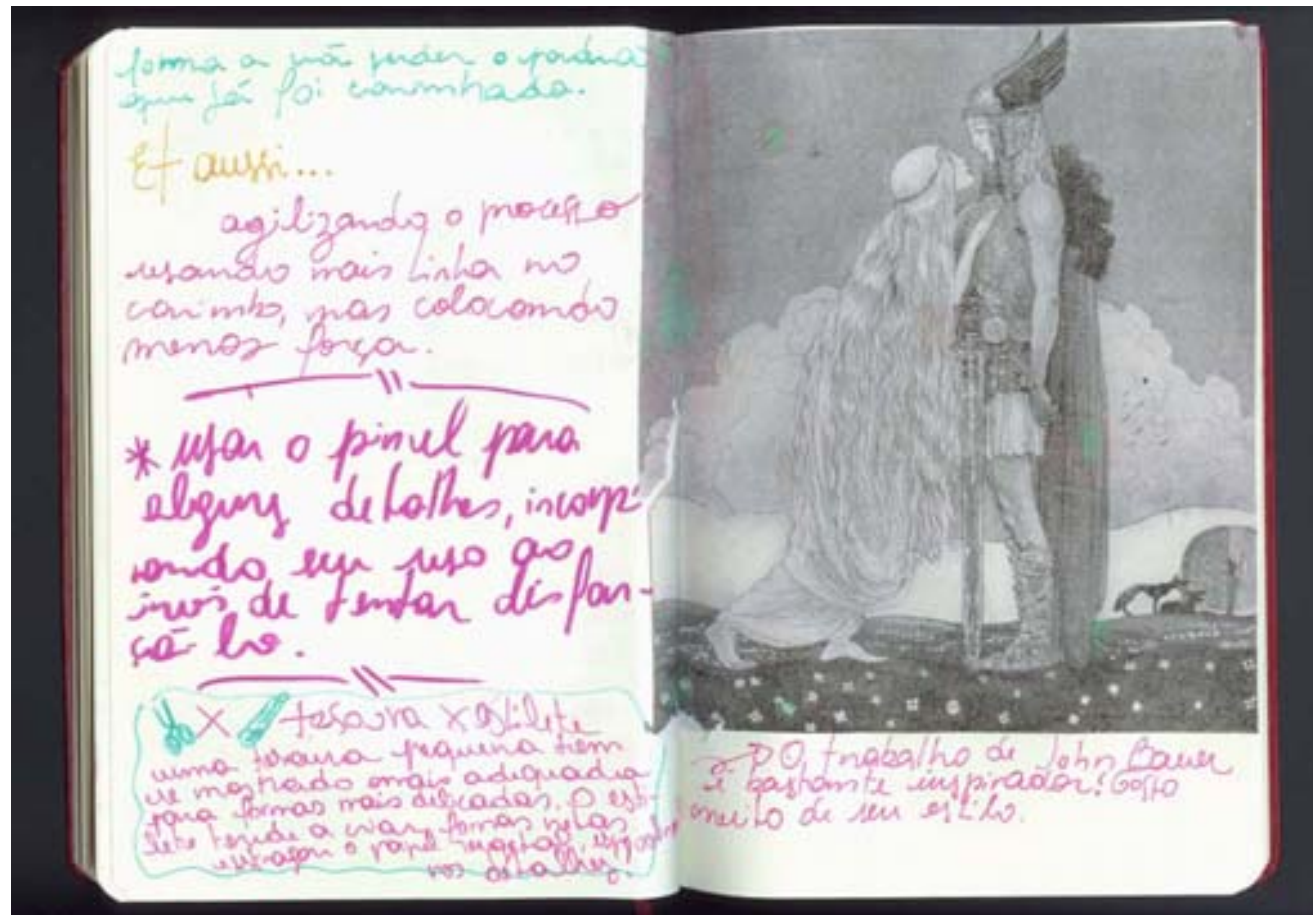 forma a não perder o padrão
que já foi carimbado.
Et aussi...
agilizando o processo
usando mais tinta no
carimbo, mas colocando
menos força.
* usar o pincel para
alguns detalhes, incorpo-
rando seu uso ao
invés de tentar disfar-
çá-lo.
X tesoura X estilete
uma tesoura pequena tem
se mostrado mais adequada
para formas mais delicadas. O esti-
lete tende a criar formas retas
e estragar o papel vegetal,
nos detalhes.
O trabalho de John Bauer
é bastante inspirador! Gosto
muito de seu estilo.